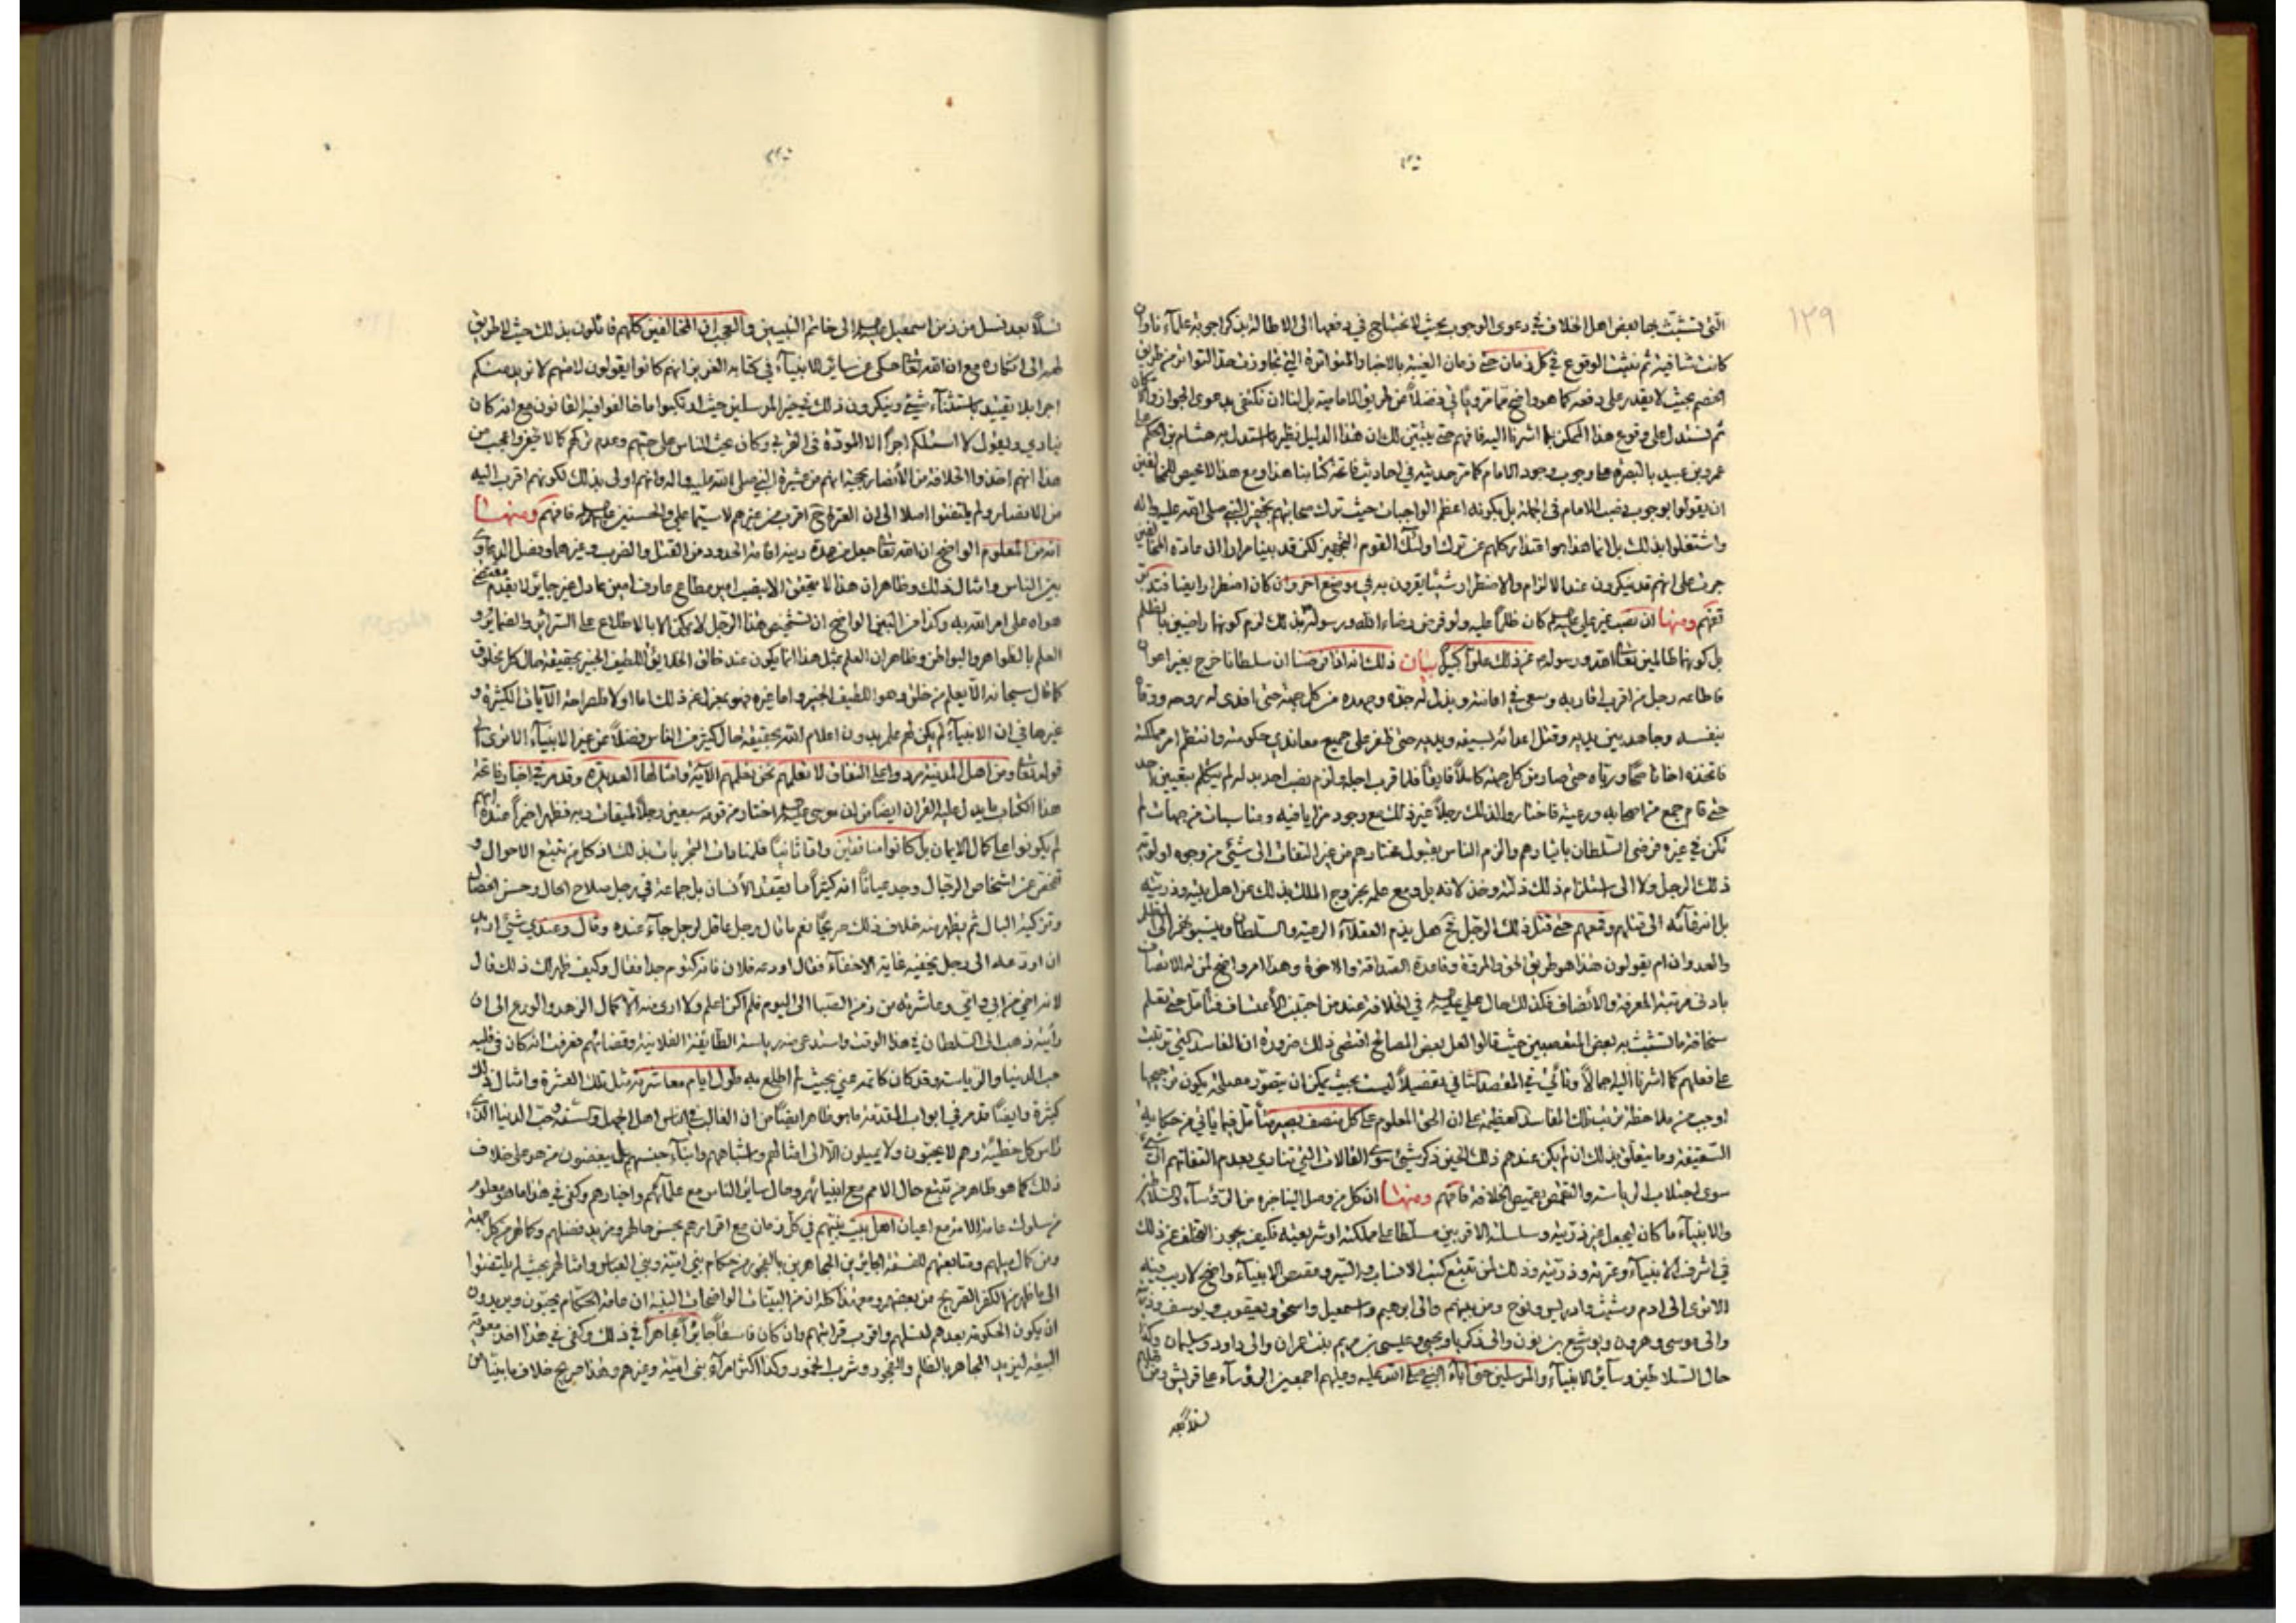 ١٢٩
التي تشبث بها بعض اهل الخلاف في دعوى الوجوب بحيث لا يحتاج في دفعها الى الاطالة بذكر اجوبة علمآء نا وان
كانت شافية ثم نثبت الوقوع في كل زمان حتى زمان الغيبة بالاخبار المتواترة التي تجاوزت هذا التواتر من طريق
الخصم بحيث لا يقدر على دفعه كما هو واضح مما مر ويأتي فضلاً عن طريق الامامية بل لنا ان نكتفي بدعوى الجواز والامكان
ثم نستدل على وقوع هذا الممكن بما اشرنا اليه فافهم حتى يتبين لك ان هذا الدليل نظير ما استدل به هشام بن الحكم على
عمرو بن عبيد بالبصرة على وجوب وجود الامام كما مر حديثه في احاديث فاتحة كتابنا هذا ومع هذا لا محيص للمخالفين
ان يقولوا بوجوب نصب الامام في الجملة بل بكونه اعظم الواجبات حيث ترك صحابتهم تجهيز النبي صلى الله عليه واله
واشتغلوا بذلك بل انما هذا هو اعتذار كلهم عن ترك اولئك القوم التجهيز لكن قد بينا مرارا ان عادة المخالفين
جرت على انهم قد ينكرون عند الالزام والاضطرار شيئا يقرون به في موضع اخر وان كان اضطرارا ايضا فتدبر
تفهم ومنها ان نصب غير علي عليه السلم كان ظلماً عليه ولو فرض رضاء الله ورسوله بذلك لزم كونهما راضيين بالظلم
بل كونهما ظالمين تعالى الله ورسوله عن ذلك علواً كبيراً بيان ذلك انه اذا فرضنا ان سلطانا خرج بغير اعوان
فاطاعه رجل من اقرب اقاربه وسعى في اعانته وبذل له جده وجهده من كل جهة حتى فدى له روحه ووقاه
بنفسه وجاهد بين يديه وقتل اعدائه بسيفه ويديه حتى ظفر على جميع معاندي حكومته وانتظم امر مملكته
فاتخذه اخا ناصحاً ورباه حتى صار من كل جهة كاملاً فايقاً فلما قرب اجله ولزم نصب احد بدله لم يتكلم بتعيين احد
حتى قام جمع من اصحابه ورعيته فاختاروا لذلك رجلاً غير ذلك مع وجود مزايا فيه ومناسبات من جهات لم
تكن في غيره فرضي السلطان بايثارهم والزم الناس بقبول مختارهم من غير التفات الى شئ من وجوه اولوية
ذلك الرجل ولا الى استلزام ذلك ذلته وخذلانه بل ومع علمه بخروج الملك بذلك عن اهل بيته وذريته
والعدوان ام يقولون هذا هو طريق الحق والمروة وقاعدة الصداقة والاخوة وهذا امر واضح لمن له الاتصاف
بادنى مرتبة المعرفة والانصاف فكذلك حال علي عليه السلم في الخلافة عند من اجتنب الاعتساف فتأمل حتى تعلم
سخافة ما تشبث به بعض المتعصبين حيث قالوا لعل بعض المصالح اقتضى ذلك ضرورة ان المفاسد التي ترتبت
على فعلهم كما اشرنا اليه اجمالاً ويأتي في المقصد الثاني تفصيلاً ليست بحيث يمكن ان يتصور مصلحة يكون ترجيحها
اوجب من ملاحظة ترتب تلك المفاسد العظيمة على ان الحق المعلوم على كل منصف بصير متأمل فيما يأتي من حكاية
السقيفة وما يتعلق بذلك ان لم يكن عندهم ذلك الحين ذكر شئ سوى المقالات التي تنادي بعدم التفاتهم الى شئ
سوى اجتلاب الرياسة والتقمص بقميص الخلافة فافهم ومنها ان كل من وصل الينا خبره من الرؤسآء والسلاطين
والانبيآء ما كان يجعل غير ذريته وسلسلة الاقربين سلطانا على مملكته او شريعته فكيف يجوز التخلف عن ذلك
في اشرف الانبيآء وعترته وذريته وذلك لمن تتبع كتب الانساب والسير وقصص الانبيآء واضح لا ريب فيه
الا ترى الى ادم وشيث وادريس ونوح ومن بينهم والى ابرهيم واسمعيل واسحق ويعقوب ويوسف وذريته
والى موسى وهرون ويوشع بن نون والى ذكريا ويحيى وعيسى بن مريم بنت عمران والى داود وسليمان وكذا
حال السلاطين وسآئر الانبيآء والمرسلين حتى آباء النبي صلى الله عليه وعليهم اجمعين الرؤسآء على قريش
نسلاً بعد
نسلاً بعد نسل من زمن اسمعيل عليه السلم الى خاتم النبيين والعجب ان المخالفين كلهم قائلون بذلك حيث لا طريق
لهم الى انكاره مع ان الله تعالى حكى عن ساير الانبيآء في كتابه العزيز انهم كانوا يقولون لامتهم لا نريد منكم
اجرا بلا تقييد باستثنآء شئ وينكرون ذلك في خير المرسلين حيث ارتكبوا ما خالفوا فيه القانون مع انه كان
ينادي ويقول لا اسئلكم اجراً الا المودة في القربى وكان يحث الناس على حبهم وعدم تركهم كما لا يخفى واعجب من
هذا انهم اخذوا الخلافة من الانصار بحجة انهم من عشيرة النبي صلى الله عليه واله وانهم اولى بذلك لكونهم اقرب اليه
من الانصار ولم يلتفتوا اصلا الى ان العترة ح اقرب من غيرهم لا سيما علي والحسنين عليهم السلم فافهم ومنها
انه من المعلوم الواضح ان الله تعالى جعل من عمدة دينه اقامة الحدود من القتل والضرب وغيرهما وفصل الدعاوي
بين الناس وامثال ذلك وظاهر ان هذا لا يتحقق الا بنصب امير مطاع عارف امين عادل غير جاير لا يقدم مقتضى
هواه على امر الله به وكذا من البين الواضح ان تشخيص هذا الرجل لا يمكن الا بالاطلاع على السرائر والضماير و
العلم بالظواهر والبواطن وظاهر ان العلم بمثل هذا انما يكون عند خالق الخلايق اللطيف الخبير بحقيقة حال كل مخلوق
كما قال سبحانه الا يعلم من خلق وهو اللطيف الخبير واما غيره فهو بمعزل عن ذلك اما اولا فلصراحة الآيات الكثيرة و
غيرها في ان الانبيآء لم يكن لهم علم بدون اعلام الله بحقيقة حال كثير من الناس فضلاً عن غير الانبيآء الا ترى الى
قوله تعالى ومن اهل المدينة مردوا على النفاق لا تعلمهم نحن نعلمهم الآية وامثالها العديدة وقد مر في اخبار فاتحة
هذا الكتاب ما يدل عليه القران ايضا من ان موسى عليه السلم اختار من قومه سبعين رجلاً لميقات ربه فظهر اخيراً عنده انهم
لم يكونوا على كمال الايمان بل كانوا منافقين واما ثانياً فلمنافات التجربات بذلك اذ كل من تتبع الاحوال و
تفحص عن اشخاص الرجال وجد عياناً انه كثيراً ما يعتقد الانسان بل جماعة في رجل صلاح الحال وحسن الفضال
وتزكية البال ثم يظهر منه خلاف ذلك صريحاً نعم ما قال رجل عاقل لرجل جآء عنده وقال وعندي شئ اريد
ان اودعه الى رجل يخفيه غاية الاخفآء فقال اودعه فلان فانه كتوم جدا فقال وكيف ظهر لك ذلك قال
لانه اخي من ابي وامي وعاشرته من زمن الصبا الى اليوم فلم اكن اعلم ولا ارى منه الا كمال الزهد والورع الى ان
رأيته ذهب الى السلطان في هذا الوقت واستدعى منه رياسة الطايفة الفلانية وقضائهم فعرفت انه كان في قلبه
حب الدنيا والرياسة وقد كان كاتمه عني بحيث لم اطلع عليه طول ايام معاشرته مثل تلك العشرة وامثال ذلك
كثيرة وايضاً قد مر في ابواب المقدمة ما هو ظاهر ايضاً من ان الغالب في الناس اهل الجهل والسفه وحب الدنيا الذي
رأس كل خطيئة وهم لا يحبون ولا يميلون الا الى امثالهم واشباههم وابنآء جنسهم بل يبغضون من هو على خلاف
ذلك كما هو ظاهر من تتبع حال الامم مع انبيائهم وحال ساير الناس مع علمآئهم واخيارهم وكفى في هذا ما هو معلوم
من سلوك عامة الامة مع اعيان اهل بيت نبيهم في كل زمان مع اقرارهم بحسن حالهم ومزيد فضلهم وكمالهم من كل جهة
ومن كمال ميلهم ومتابعتهم للفسقة الجايرين المجاهرين بالفجور من حكام بني امية وبني العباس وامثالهم بحيث لم يلتفتوا
الى ما ظهر من الكفر الصريح من بعضهم ومع هذا كله ان من البينات الواضحات البينة ان عامة الحكام يحبون ويريدون
ان يكون الحكومة بعدهم لنسلهم واقرب قرابتهم وان كان فاسقاً جايراً مجاهراً في ذلك وكفى في هذا اخذ معوية
البيعة ليزيد المجاهر بالظلم والفجور وشرب الخمور وكذا اكثر امرآء بني امية وغيرهم وهذا صريح خلاف ما بينا من